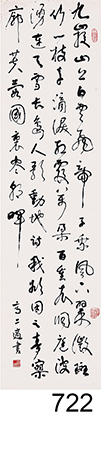 九嶷山上白雲飛帝子乘風下翠微斑
竹一枝千滴淚紅霞萬朵百重衣洞庭波
湧連天雪長島人歌動地詩我欲因之夢寥
廓芙蓉國裏盡朝暉
高二適書
722